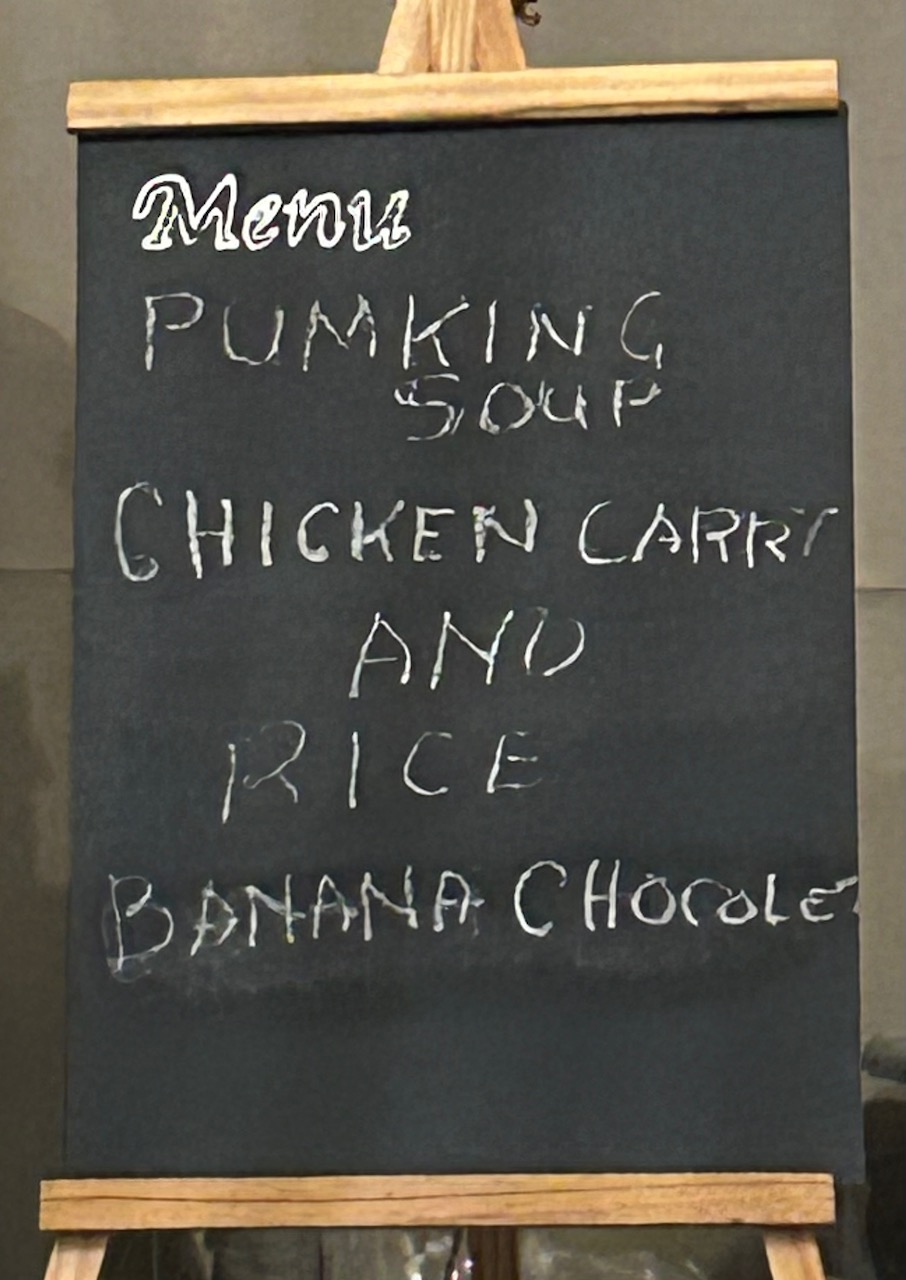 Menu
PUMKING
SOUP
CHICKEN CARRY
AND
RICE
BANANA CHOCOLET